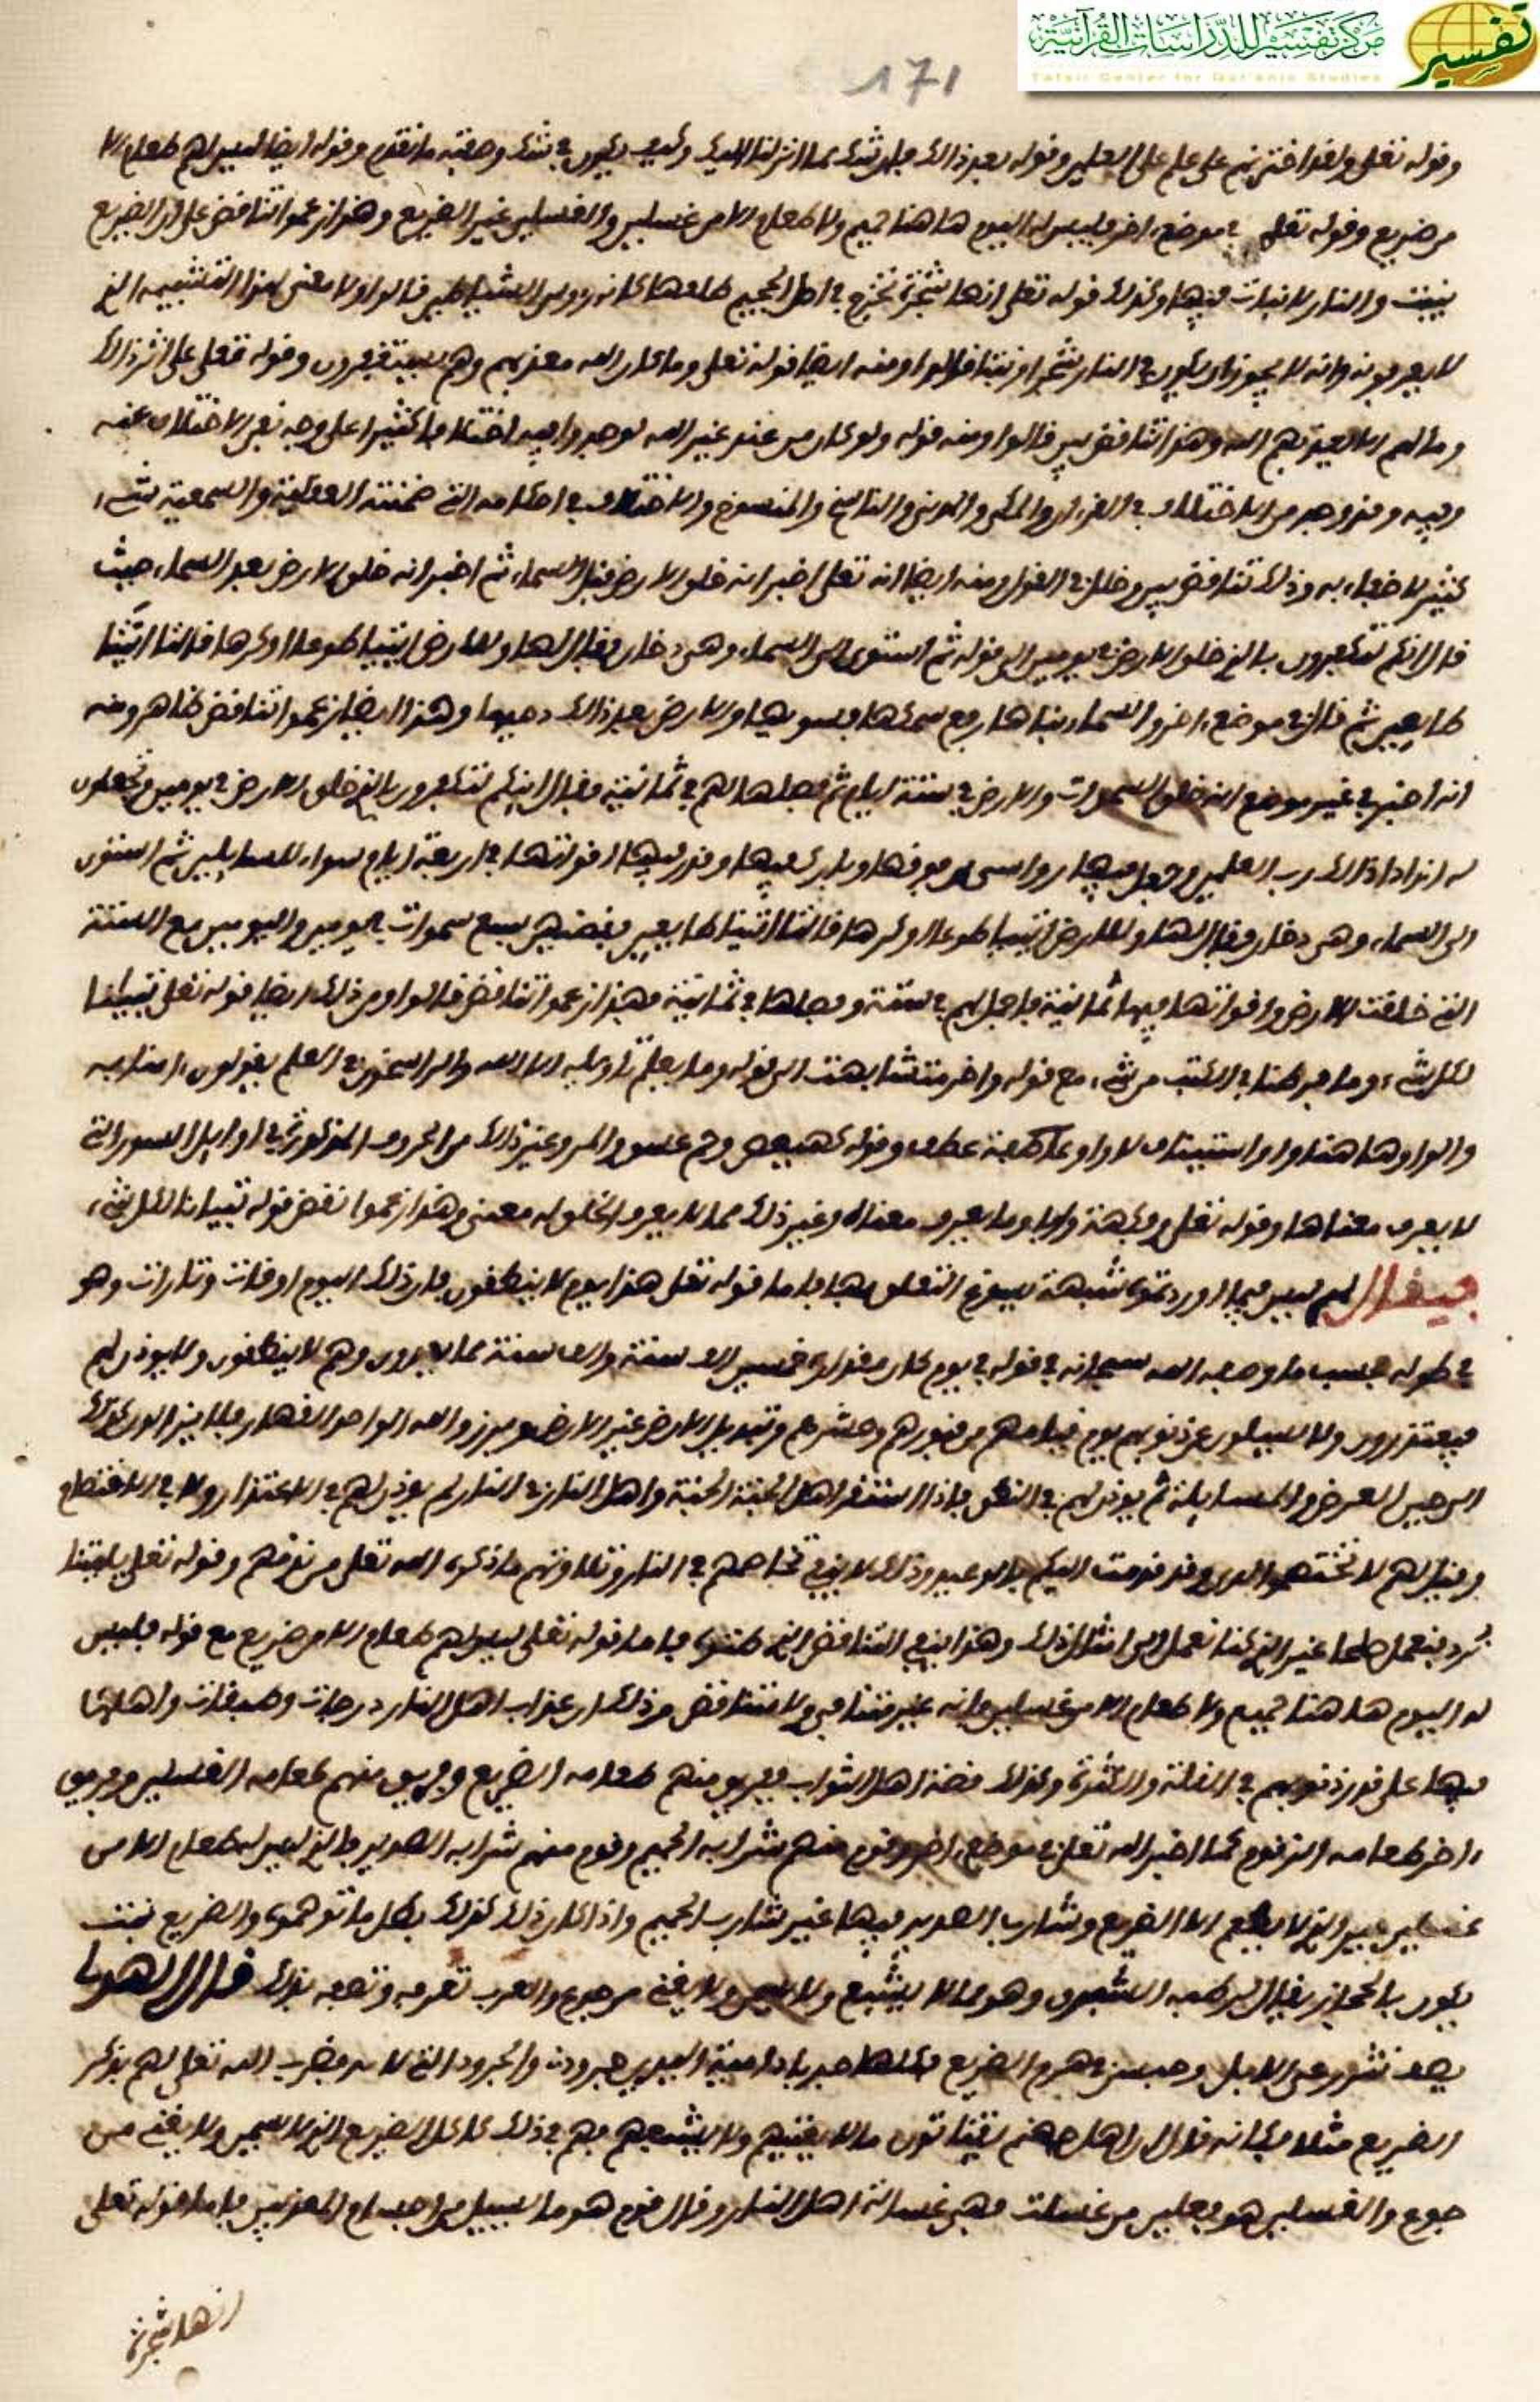 مركز تفسير للدراسات القرآنية
Tafsir Center for Qur'anic Studies
تفسير
171
وقوله تعلى ولقد اخترنهم على علم على العلمين وقوله بعد ذالك فان شك مما انزلنا اليك وكيف يكون في شك وصفته ما تقدم وقوله ايضا ليس لهم طعام الا
من ضريع وقوله تعلى في موضع اخر فليس له اليوم هاهنا حميم ولا طعام الا من غسلين والغسلين غير الضريع وهذا زعموا تناقض على ان الضريع
ينبت والنار لا نبات فيها وكذلك قوله تعلى انها شجرة تخرج في اصل الجحيم طلعها كانه رءوس الشياطين قالوا ولا معنى لهذا التشبيه الذي
لا يعرفونه وانه لا يجوز ان يكون في النار شجر او نبتا قالوا ومنه ايضا قوله تعلى وما كان الله معذبهم وهم يستغفرون وقوله تعلى على اثر ذالك
وما لهم الا يعذبهم الله وهذا تناقض بين قالوا ومنه قوله ولو كان من عند غير الله لوجدوا فيه اختلافا كثيرا على وجه نفي الاختلاف عنه
وفيه وقد وجد من الاختلاف في القران والمكي والمدني والناسخ والمنسوخ والاختلاف في احكامه التي ضمنته العقلية والسمعية شيء
كثير لا خفاء به وذلك تناقض بين وخلل في القول ومنه ايضا انه تعلى اخبر انه خلق الارض قبل السماء ثم اخبر انه خلق الارض بعد السماء حيث
قال ائنكم لتكفرون بالذي خلق الارض في يومين الى قوله ثم استوى الى السماء وهي دخان فقال لها وللارض ائتيا طوعا او كرها قالتا اتينا
طايعين ثم قال في موضع اخر والسماء بناها رفع سمكها فسويها والارض بعد ذالك دحيها وهذا ايضا زعموا تناقض ظاهر ومنه
انه اخبر في غير موضع انه خلق السموات والارض في ستة ايام ثم فصلها لهم في ثمانية فقال ائنكم لتكفرون بالذي خلق الارض في يومين وتجعلون
له اندادا ذالك رب العلمين وجعل فيها رواسي من فوقها وبارك فيها وقدر فيها اقواتها في اربعة ايام سواء للسايلين ثم استوى
الى السماء وهي دخان فقال لها وللارض ائتيا طوعا او كرها قالتا اتينا طايعين فقضيهن سبع سموات في يومين واليومين مع الستة
التي خلقت الارض واقواتها فيها ثمانية فاجمل لهم في ستة وفصلها في ثمانية فهذا زعموا تناقض قالوا ومن ذلك ايضا قوله تعلى تبيانا
لكل شيء وما فرطنا في الكتب من شيء مع قوله واخر متشابهت الى قوله وما يعلم تاويله الا الله والراسخون في العلم يقولون امنا به
والواو هاهنا واو استيناف لا واو عاطفة عطف وقوله كهيعص وحم عسق والمر وغير ذالك من الحروف المذكورة في اوايل السور التي
لا يعرف معناها وقوله تعلى وفكهة وابا وما يعرف معناه وغير ذلك مما لا يعرف الخلق له معنى وهذا زعموا نقض قوله تبيانا لكل شيء
فيقال لهم ليس فيما اوردتموه شبهة يسوغ التعلق بها فاما قوله تعلى هذا يوم لا ينطقون فان ذلك اليوم اوقات وتارات وهو
في طوله حسب ما وصفه الله سبحانه في قوله في يوم كان مقداره خمسين الف سنة والف سنة مما تعدون وهم لا ينطقون ولا يوذن لهم
فيعتذرون ولا يسيلون عن ذنوبهم يوم قيامهم من قبورهم وحشرهم وتبديل الارض غير الارض وبرزوا لله الواحد القهار فلا يزالون كذلك
الى حين العرض والمسايلة ثم يوذن لهم في النطق فاذا استقر اهل الجنة في الجنة واهل النار في النار لم يوذن لهم في الاعتذار ولا في الاختصام
وقيل لهم لا تختصموا لدي وقد قدمت اليكم بالوعيد وذلك لا ينفي تخاصمهم في النار وتلاوتهم ما ذكره الله تعلى من قولهم وقوله تعلى ياليتنا
نرد فنعمل صلحا غير الذي كنا نعمل وامثال ذلك وهذا ينفي التناقض الذي ظنوه فاما قوله تعلى ليس لهم طعام الا من ضريع مع قوله فليس
له اليوم هاهنا حميم ولا طعام الا من غسلين فانه غير متنافي ولا متناقض وذلك ان عذاب اهل النار درجات وطبقات واهلها
فيها على قدر ذنوبهم في القلة والكثرة وكذلك قصة اهل الثواب ففريق منهم طعامه الضريع وفريق منهم طعامه الغسلين وفريق
اخر طعامه الزقوم كما اخبر الله تعلى في موضع اخر وقوم منهم شرابه الحميم وقوم منهم شرابه الصديد فالذي ليس له طعام الا من
غسلين غير الذي لا يطعم الا الضريع وشارب الصديد فيها غير شارب الحميم واذا كان ذلك كذلك بطل ما توهموه والضريع نبت
يكون بالحجاز يقال لرطبه الشبرق وهو مما لا يشبع ولا يسمن ولا يغني من جوع والعرب تعرفه وتصفه بذلك قال الهذلي
يصف نوق من الابل وحبسن في هزم الضريع فكلها حدباء دامية اليدين حرود والحرود التي لا لبن فضرب الله تعلى لهم بذكر
الضريع مثلا فكانه قال ان اهل جهنم يقتاتون ما لا يغنيهم ولا يشبعهم فهم في ذلك كاكل الضريع الذي لا يسمن ولا يغني من
جوع والغسلين هو فعلين من غسلت فهي غسالة اهل النار وقال قوم هو ما يسيل من اجسام المعذبين فاما قوله تعلى
انها شجرة